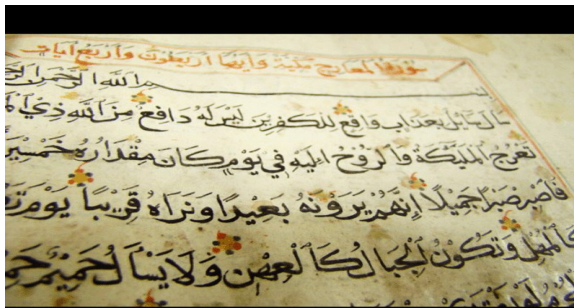 سورة المعارج مكية وآيتها أربعون وأربع آيات
الله الرحمن الر
سأل سايل بعذاب واقع للكفرين ليس له دافع من الله ذي
تعرج المليكة والروح اليه في يوم كان مقداره خمسين
فاصبر صبرا جميلا انهم يرونه بعيدا ونراه قريبا يوم
كالمهل وتكون الجبال كالعهن ولا يسأل حميم